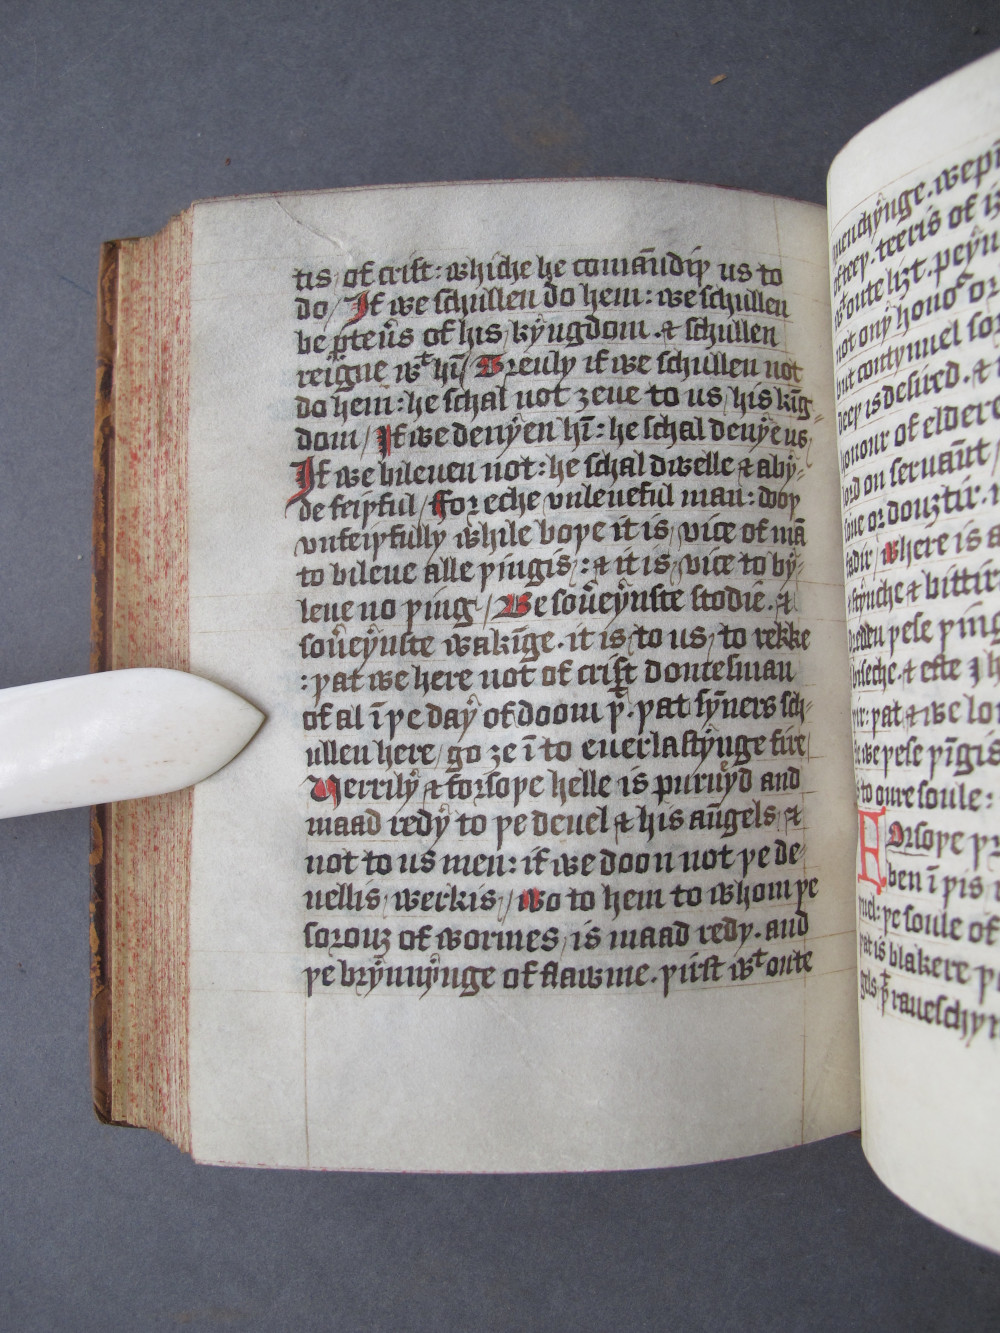 tis, of crist: whiche he comaūdiþ us to
do / If we schullen do hem: we schullen
be ꝑteñs of his, kẏngdom . & schullen
reigne wᵗ hī / Treuly if we schullen not
do hem: he schal not ȝeue to us, his kīg-
dom / If we denẏen hī: he schal denẏe us,
If we bileuen not: he schal dwelle & abẏ-
de feiþful / For eche vnleueful man: doþ
vnfeiþfully while boþe it is, vice of mā
to bileue alle þingis,: & it is, vice to bẏ-
leue no þing / Þe souēẏnste stodie . &
souēẏnste wakīge . it is, to us, to rekke
: þat we here not of crist domesman
of al ī þe daẏ of doom þᵗ . þat sẏners sch-
ullen here, go ȝe ī to euerlastẏnge fire
Verrilẏ & forsoþe helle is puruẏd and
maad redẏ to þe deuel & his aūgels, &
not to us men: if we doon not þe de-
uellis, werkis, / wo to hem to whom þe
sorouȝ of wormes, is maad redy . and
þe brẏnnẏnge of flawme . þirst wᵗ oute
quenchẏnge . wepi
of teeþ . teeris of iȝ
wᵗ oute liȝt . peẏn
not onẏ honoᵘr or
but contynuel so
deeþ is desired . &
honour of eldere
lord on seruaūt /
sone or douȝtir .
fadir, where is a
stẏnche & bittir
dreden þese þing
biseche . & efte
þat & we lo
we þese þīgis
to oure soule:
Forsoþe þr
ben ī þis
þe soule of
þat is blakere þ
gels, þᵗ raueschyn